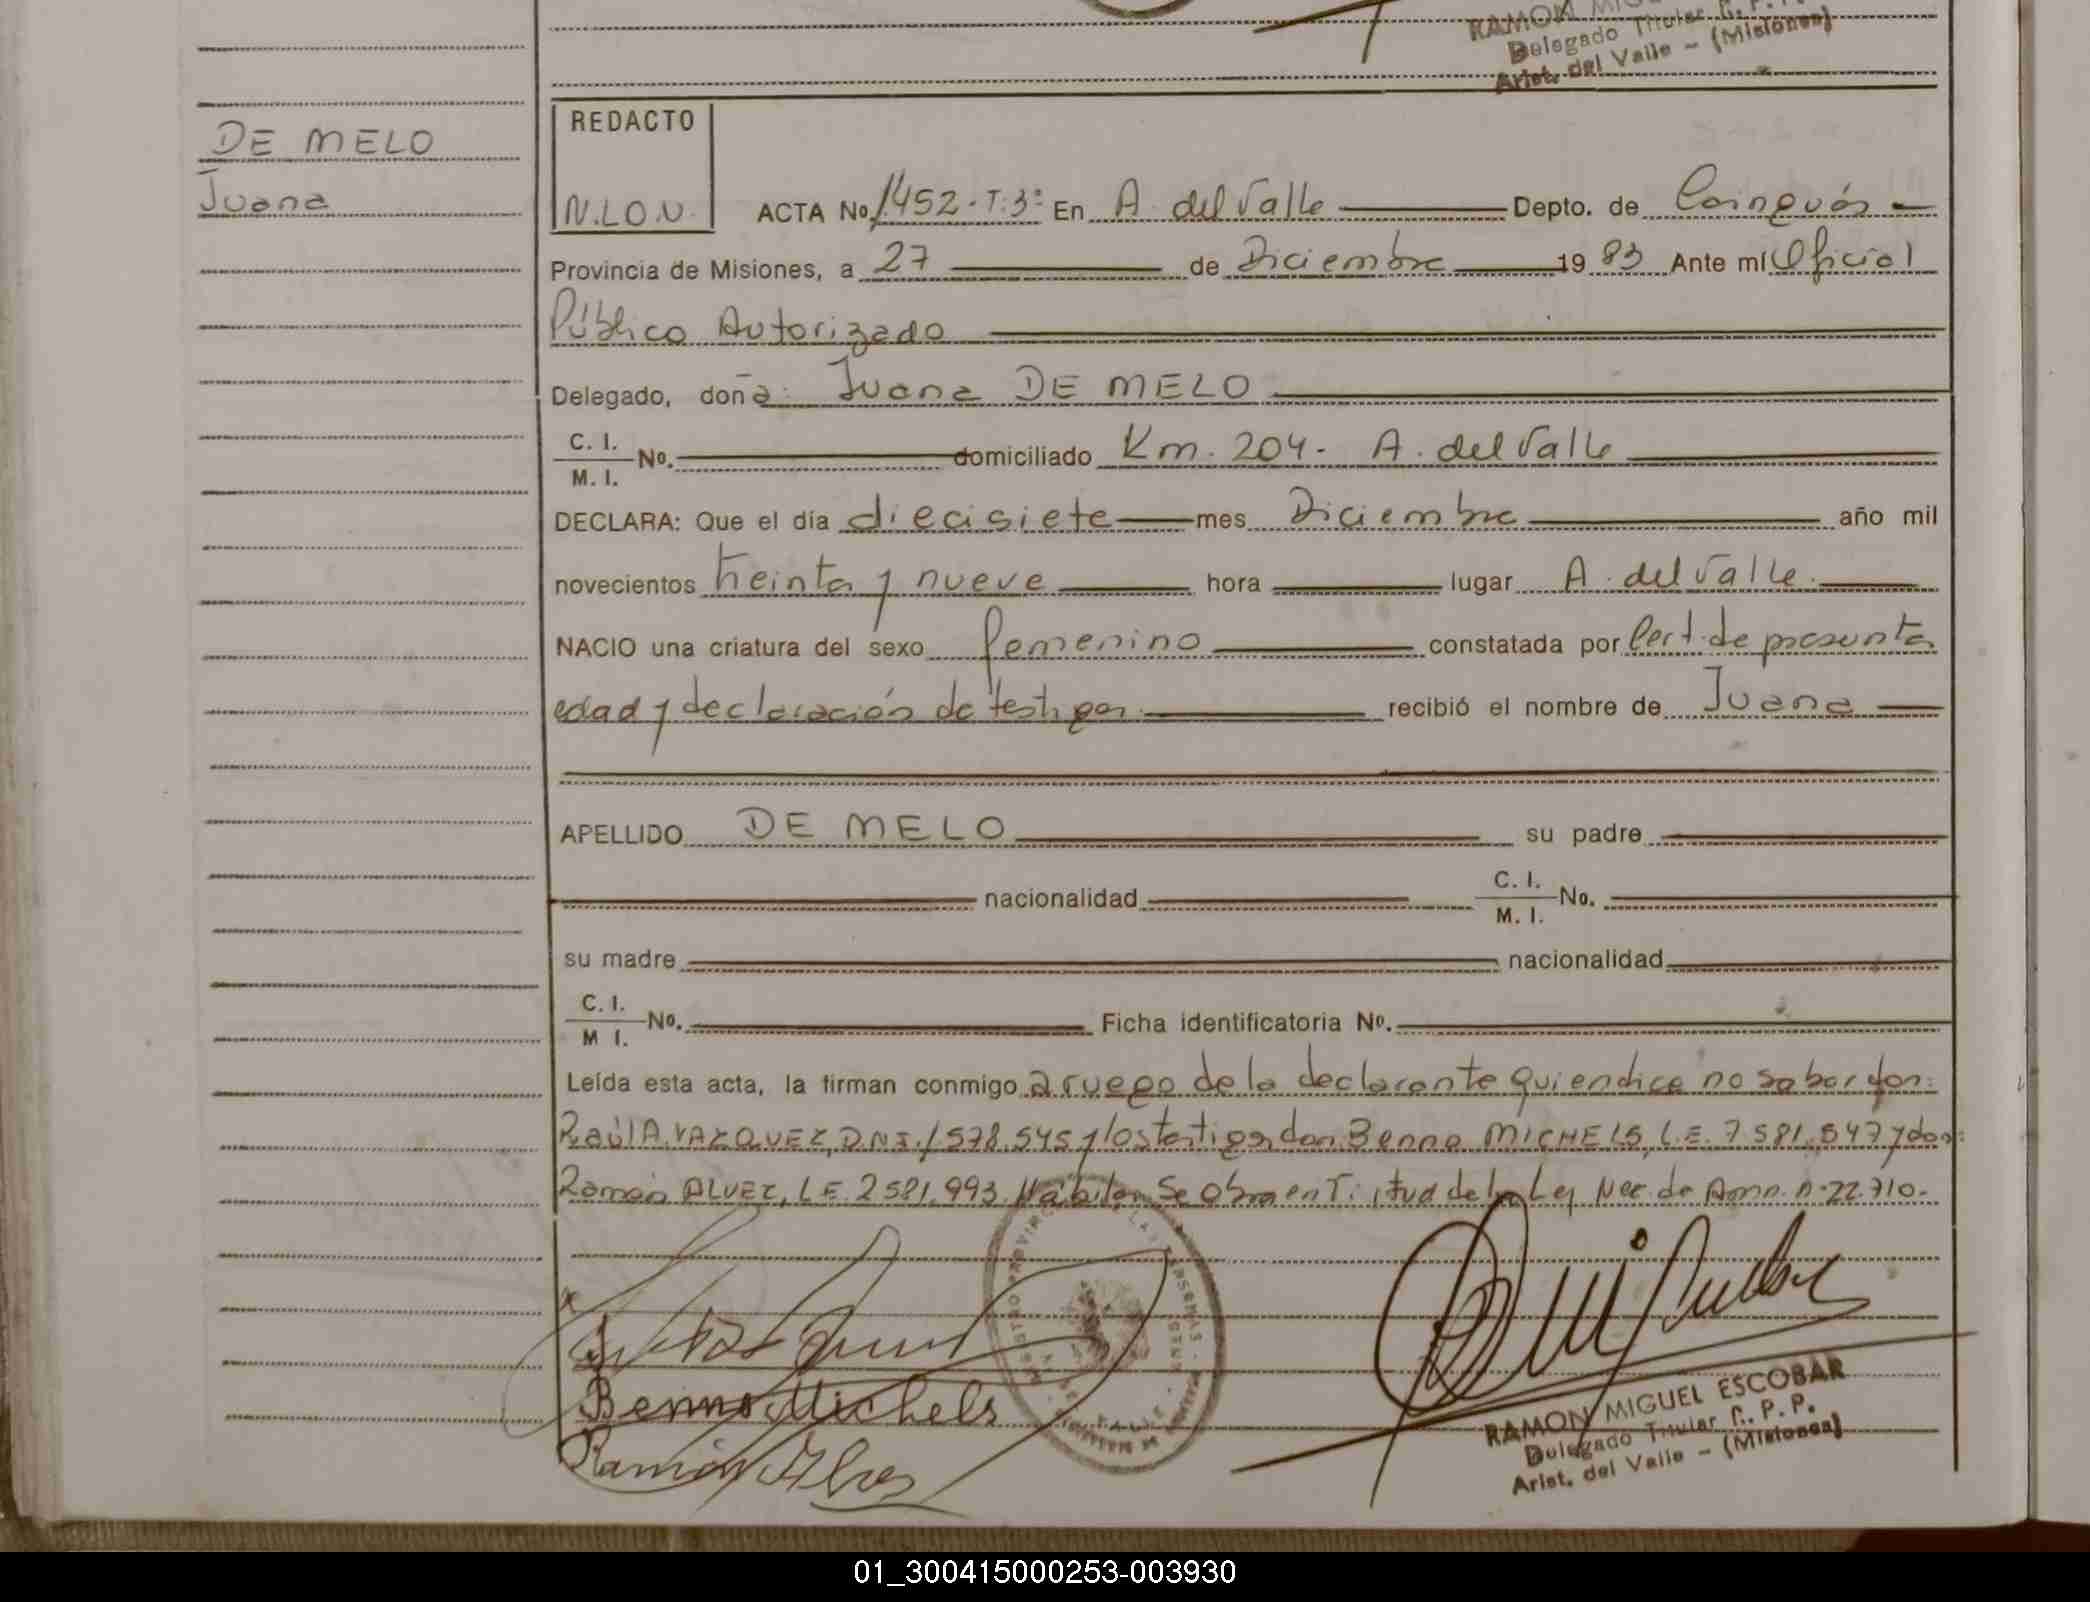 RAMON MIG
Delegado Titular R. P. P.
Arist. del Valle - (Misiones)
DE MELO
Juana
REDACTO
N.L.O.N.
ACTA No. 1452-T.3º En A. del Valle Depto. de Cainguás
Provincia de Misiones, a 27 de Diciembre 19 83 Ante mí Oficial
Público Autorizado
Delegado, doña: Juana DE MELO
C. I.
M. I. No. domiciliado Km. 204- A. del Valle
DECLARA: Que el día diecisiete mes Diciembre año mil
novecientos treinta y nueve hora lugar A. del Valle.
NACIO una criatura del sexo femenino constatada por Cert. de presunta
edad y declaración de testigos. recibió el nombre de Juana
APELLIDO DE MELO su padre
nacionalidad C. I.
M. I. No.
su madre nacionalidad
C. I.
M I. No. Ficha identificatoria No.
Leída esta acta, la firman conmigo a ruego de la declarante quien dice no saber don:
Raúl A. VAZQUEZ, D.N.I. 1578.545 y los testigos don Benno MICHELS, L.E. 7.581.547 y don:
Ramón ALVEZ, L.E. 2581.993. Hábiles Se obra en la Ley Nac. de Amn. n-22.710-
Benno Michels
Ramón Alves
RAMON MIGUEL ESCOBAR
Delegado Titular R. P. P.
Arist. del Valle - (Misiones)
01_300415000253-003930